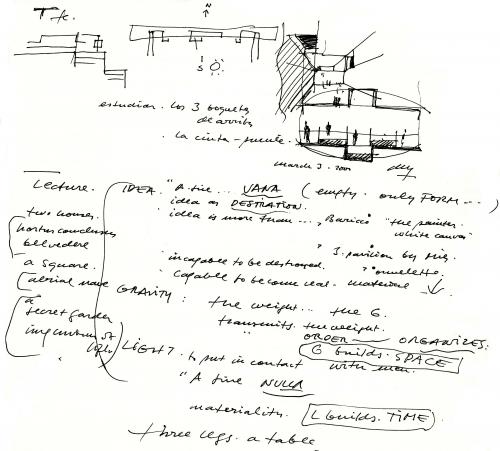 N
S
estudiar. los 3 boquetes
de arriba
. la cinta - puente.
March 3. 2001
Lecture.
IDEA. "A fine... VANA (empty. only FORM...)
idea as
idea is more than..., Baricco "the painter.
white canvas"
two houses.
hortus conclusus
belvedere
a square.
" J. pavilion by Mies.
incapable to be destroyed. " omelette.
capable to become real. material
aerial nave
GRAVITY: the weight... the G.
transmits. the weight.
ORDER ORGANIZES:
G builds. SPACE
a
secret garden
LIGHT? to put in contact with man.
"A fine NULLA
materiality. L builds. TIME
three legs. a table